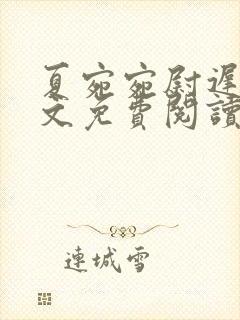 夏宛宛尉遲
文免費閱讀
連城雪